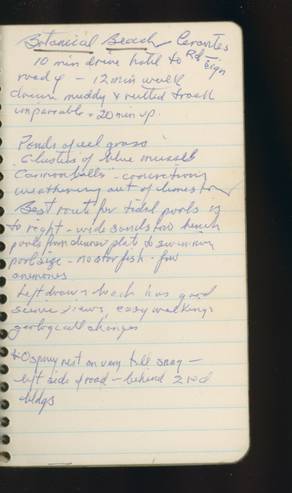 Botanical Beach Cerantes
10 min drive hotel to Rd - sign
road of - 12 min walk
down muddy & rutted track
impassable = 20 min up.
Ponds of eel grass
Clusters of blue mussels
Cannonballs - concretions
weathering out of limestone
Best route for tidal pools is
to right - wide sandstone bench
pools from dinner plate to swimming
pool size - no starfish - few
anemones
Left down beach has good
scenic views, easy walking &
geological changes
Osprey nest on very tall snag -
left side of road - behind 2 red
bldgs